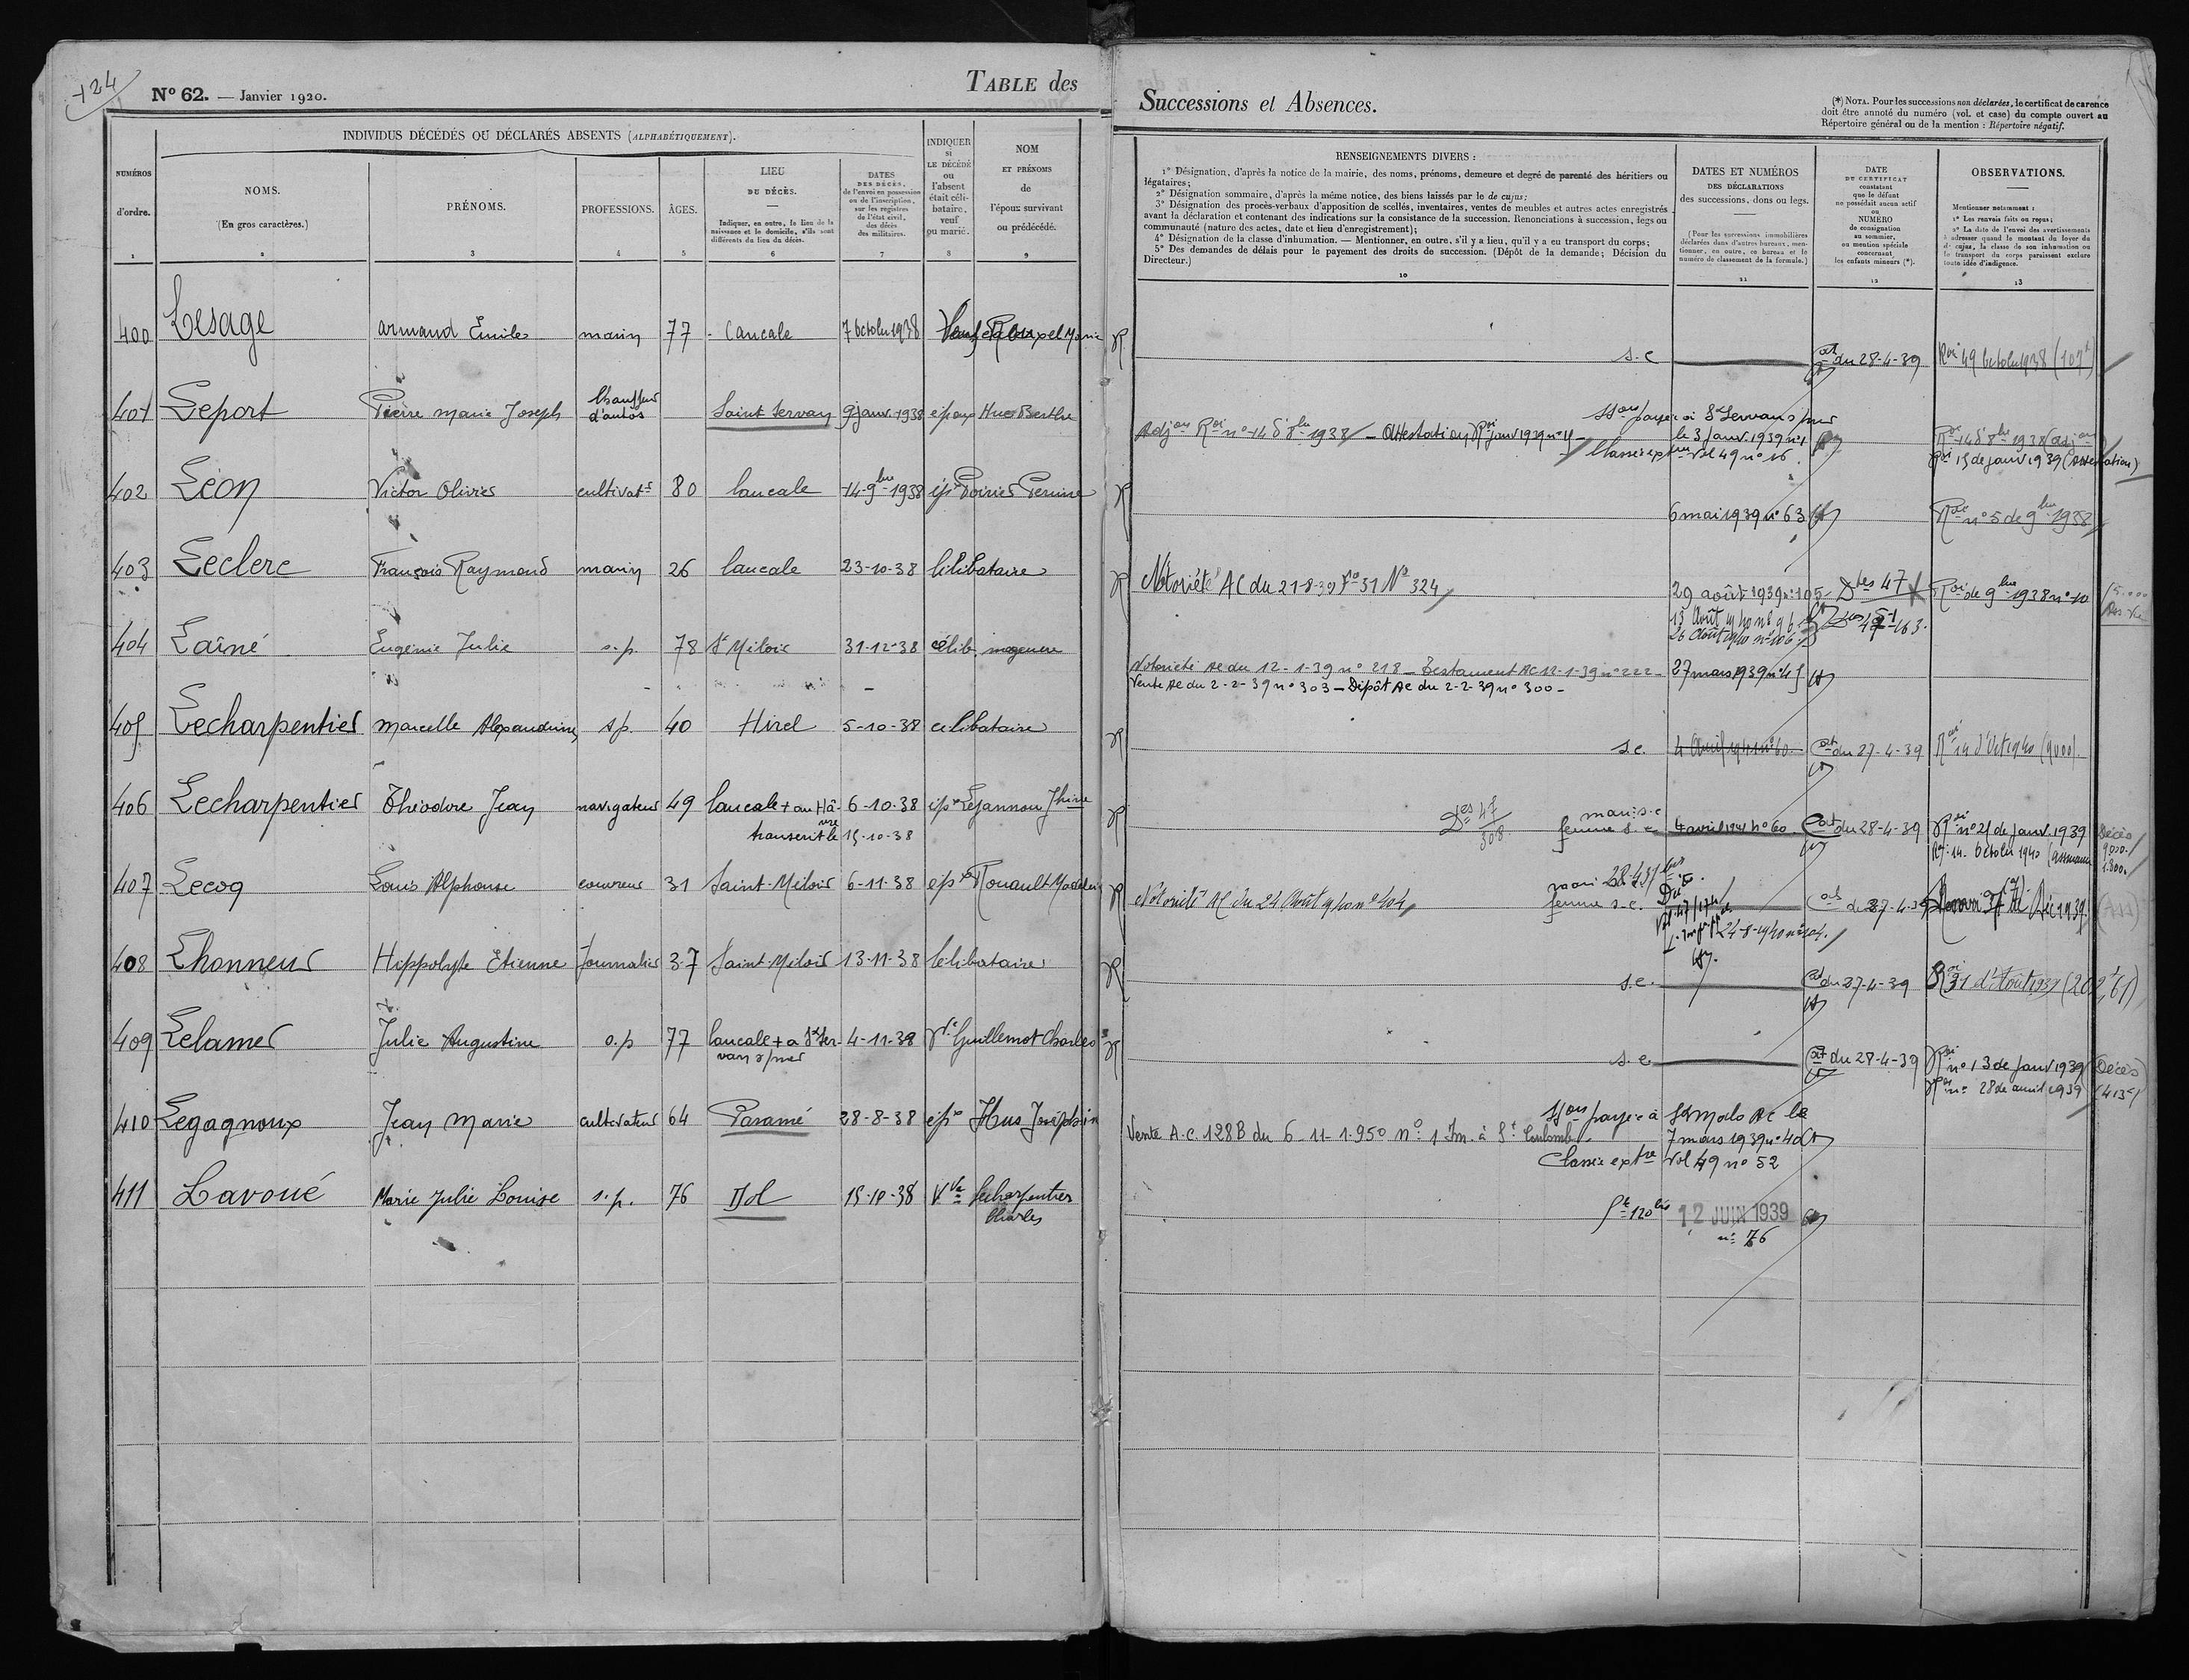 124
N° 62. — Janvier 1920.
TABLE des
Successions et Absences.
(*) NOTA. Pour les successions non déclarées, le certificat de carence
doit être annoté du numéro (vol. et case) du compte ouvert au
Répertoire général ou de la mention : Répertoire négatif.
INDIVIDUS DÉCÉDÉS OU DÉCLARÉS ABSENTS (ALPHABÉTIQUEMENT).
NUMÉROS
d'ordre.
1
NOMS.
(En gros caractères.)
2
PRÉNOMS.
3
PROFESSIONS.
4
ÂGES.
5
LIEU
DU DÉCÈS.
Indiquer, en outre, le lieu de la
naissance et le domicile, s'ils sont
différents du lieu du décès.
6
DATES
DES DÉCÈS,
de l'envoi en possession
ou de l'inscription,
sur les registres
de l'état civil,
des décès
des militaires.
7
INDIQUER
si
LE DÉCÉDÉ
ou
l'absent
était céli-
bataire,
veuf
ou marié.
8
NOM
ET PRÉNOMS
de
l'époux survivant
ou prédécédé.
9
RENSEIGNEMENTS DIVERS :
1° Désignation, d'après la notice de la mairie, des noms, prénoms, demeure et degré de parenté des héritiers ou
légataires;
2° Désignation sommaire, d'après la même notice, des biens laissés par le de cujus;
3° Désignation des procès-verbaux d'apposition de scellés, inventaires, ventes de meubles et autres actes enregistrés
avant la déclaration et contenant des indications sur la consistance de la succession. Renonciations à succession, legs ou
communauté (nature des actes, date et lieu d'enregistrement);
4° Désignation de la classe d'inhumation. — Mentionner, en outre, s'il y a lieu, qu'il y a eu transport du corps;
5° Des demandes de délais pour le payement des droits de succession. (Dépôt de la demande; Décision du
Directeur.)
10
DATES ET NUMÉROS
DES DÉCLARATIONS
des successions, dons ou legs.
(Pour les successions immobilières
déclarées dans d'autres bureaux, men-
tionner, en outre, ce bureau et le
numéro de classement de la formule.)
11
DATE
DU CERTIFICAT
constatant
que le défunt
ne possédait aucun actif
ou
NUMÉRO
de consignation
au sommier,
ou mention spéciale
concernant
les enfants mineurs (*).
12
OBSERVATIONS.
Mentionner notamment :
1° Les renvois faits ou reçus;
2° La date de l'envoi des avertissements
à adresser quand le montant du loyer du
de cujus, la classe de son inhumation ou
le transport du corps paraissent exclure
toute idée d'indigence.
13
400 Lesage Armand Emile marin 77 Cancale 7 octobre 1938 Rouxpel Marie
s.c. du 28-4-39
401 Leport Pierre Marie Joseph Chauffeur d'autos Saint Servan 9 janv. 1938 époux Hue Berthe
le 3 janv. 1939 n° 1
Vol 49 n° 16
402 Léon Victor Olivier cultivatr 80 Cancale 14-9bre 1938 épx Poirier Perrine
6 mai 1939 n° 63 n° 5 de 9bre 1938
403 Leclerc François Raymond marin 26 Cancale 23-10-38 célibataire
Notoriété AC du 21-8-39 F° 31 N° 324 29 août 1939 n° 105 Des 47 de 9bre 1938 n° 10
13 Août 1940 n° 96
26 Août 1940 n° 106
404 Laîné Eugénie Julie s.p. 78 St Méloir 31-12-38 célib. mageure
Notoriété AC du 12-1-39 n° 218 — Testament AC 12-1-39 n° 222 — 27 mars 1939 n° 45
Vente AC du 2-2-39 n° 303 — Dépôt AC du 2-2-39 n° 300 —
405 Lecharpentier Marcelle Alexandrine s.p. 40 Hirel 5-10-38 célibataire
s.c. 4 avril 1941 n° 60 du 27-4-39
406 Lecharpentier Théodore Jean navigateur 49 Cancale + au Hâ- 6-10-38 épx Lejannou Jhine
vre
transcrit le 15-10-38
Des 47 mari s.c.
308 femme s.c. 4 avril 1941 n° 60 du 28-4-39 n° 21 de janv. 1939 Décès
14 octobre 1940
407 Lecoq Louis Alphonse couvreur 31 Saint-Méloir 6-11-38 épx Rouault
Notoriété AC du 24 Août 1940 n° 404 mari
femme s.c.
24-8-1940 n° 104
408 Lhonneur Hippolyte Etienne Journalier 37 Saint-Méloir 13-11-38 célibataire
s.c. du 27-4-39
409 Lelamer Julie Augustine s.p. 77 Cancale + à St Ser- 4-11-38 Ve Guillemot Charles
van s/mer
s.c. du 28-4-39 n° 13 de janv 1939 (Décès)
n° 28 de avril 1939
410 Legagnoux Jean Marie cultivateur 64 Paramé 28-8-38 épx Hus Joséphin
Son payée à St Malo AC le
Vente A.C. 128B du 6-11-1950 n° 1 Im. à St Coulomb 7 mars 1939 n° 40
Classée extre Vol 49 n° 52
411 Lavoué Marie Julie Louise s.p. 76 Dol 15-10-38 Vve Lecharpentier
Charles
12 JUIN 1939
n° 76